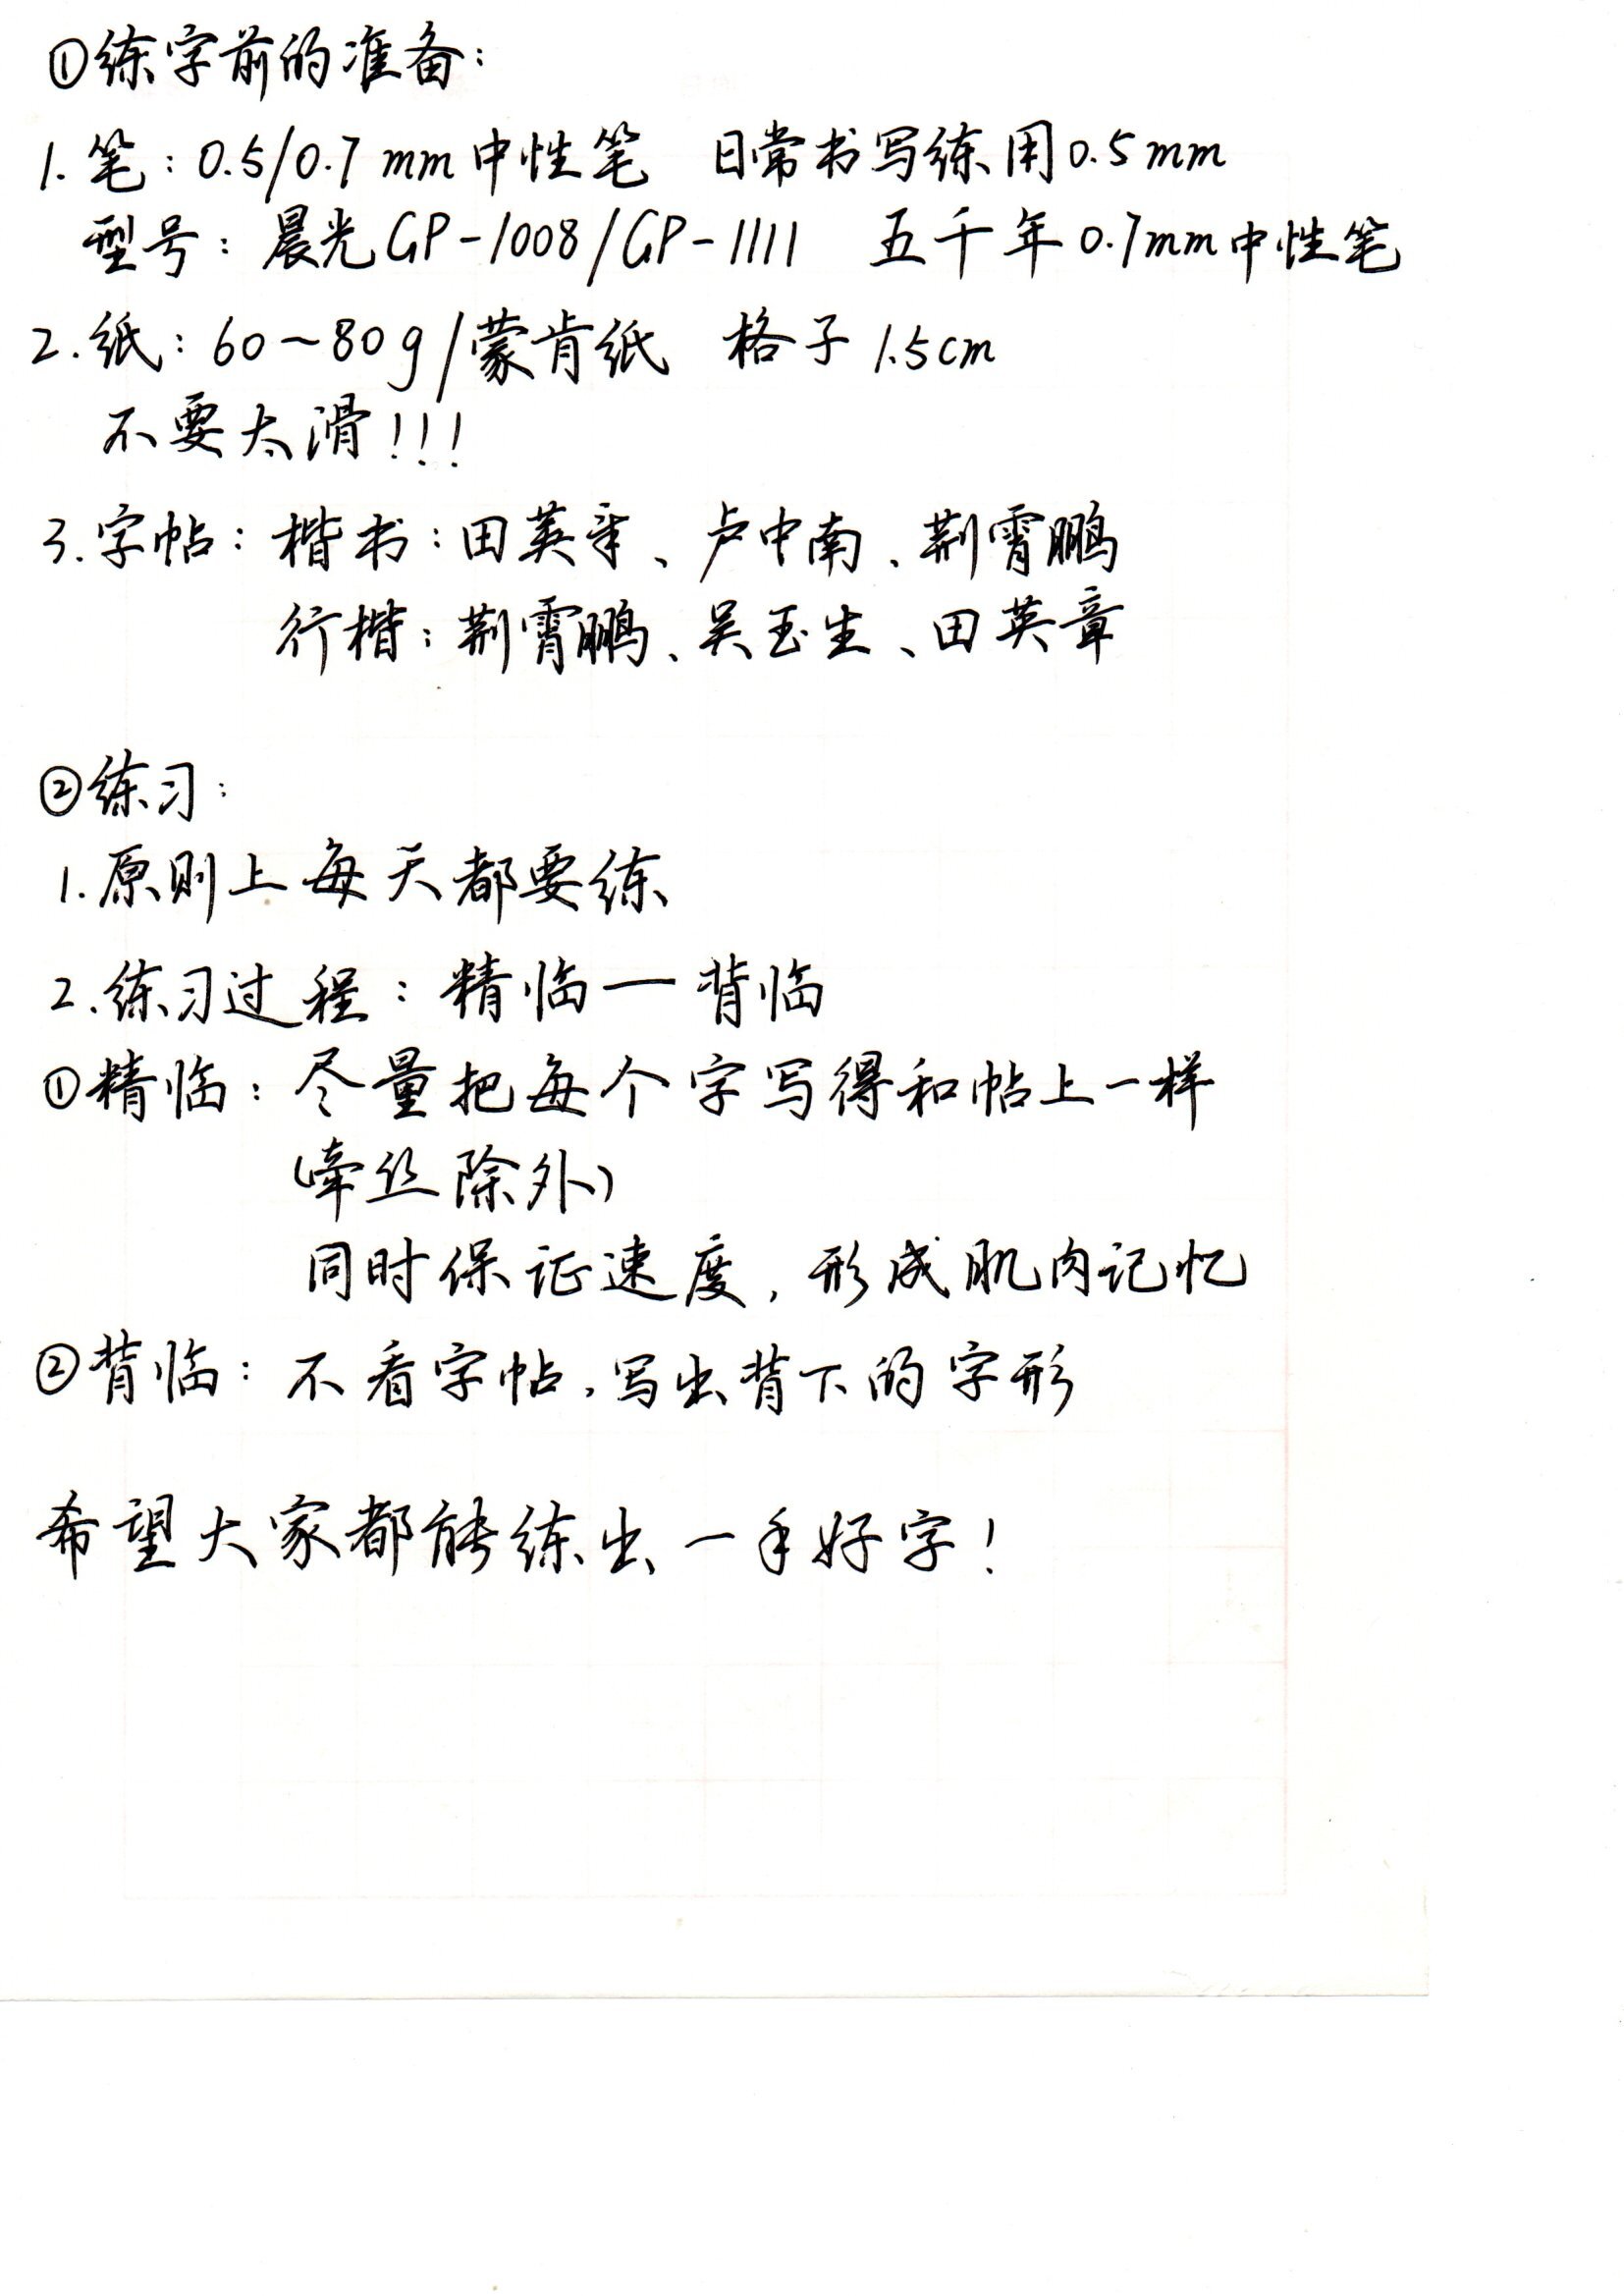 ①练字前的准备：
1.笔：0.5/0.7mm中性笔 日常书写练用0.5mm
型号：晨光GP-1008/GP-1111 五千年0.7mm中性笔
2.纸：60~80g/蒙肯纸 格子1.5cm
不要太滑!!!
3.字帖：楷书：田英章、卢中南、荆霄鹏
行楷：荆霄鹏、吴玉生、田英章
②练习：
1.原则上每天都要练
2.练习过程：精临—背临
①精临：尽量把每个字写得和帖上一样
(牵丝除外)
同时保证速度，形成肌肉记忆
②背临：不看字帖，写出背下的字形
希望大家都能练出一手好字！